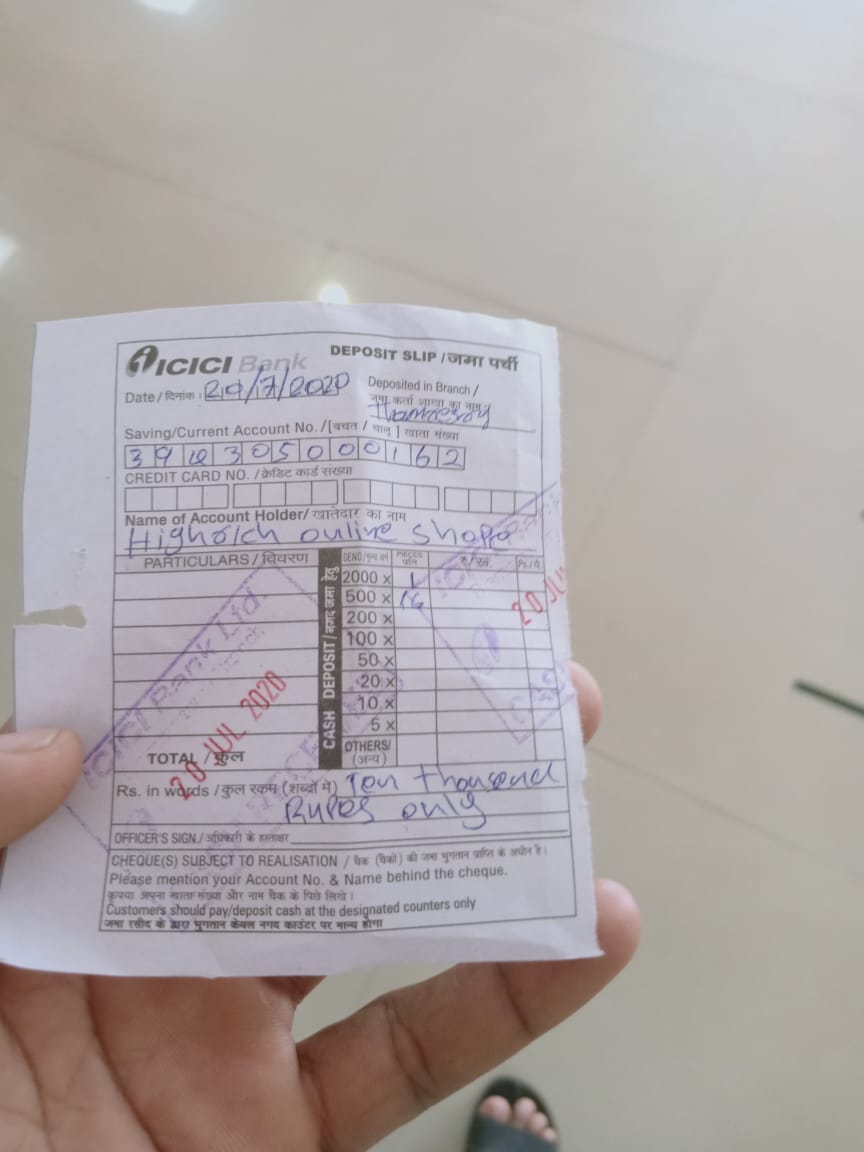 ICICI Bank DEPOSIT SLIP / जमा पर्ची
Date / दिनांक : 20/7/2020 Deposited in Branch /
जमा कर्ता शाखा का नाम
Saving/Current Account No. / [बचत / चालू ] खाता संख्या
394305000162
CREDIT CARD NO. / क्रेडिट कार्ड संख्या
Name of Account Holder/ खातेदार का नाम
Highrich online Shope
PARTICULARS / विवरण
CASH DEPOSIT / नगद जमा हेतु
DENO/ PIECES
2000 x 1
500 x 16
200 x
100 x
50 x
20 x
10 x
5 x
OTHERS/
(अन्य)
TOTAL / कुल
ICICI Bank Ltd.
20 JUL 2020
20 JUL
Rs. in words / कुल रकम (शब्दों में) Ten thousand
Rupes only
OFFICER'S SIGN./ अधिकारी के हस्ताक्षर
CHEQUE(S) SUBJECT TO REALISATION / चैक (चैकों) की जमा भुगतान प्राप्ति के अधीन है।
Please mention your Account No. & Name behind the cheque.
कृपया अपना खाता संख्या और नाम चैक के पिछे लिखे।
Customers should pay/deposit cash at the designated counters only
जमा रसीद के द्वारा भुगतान केवल नगद काउंटर पर मान्य होगा